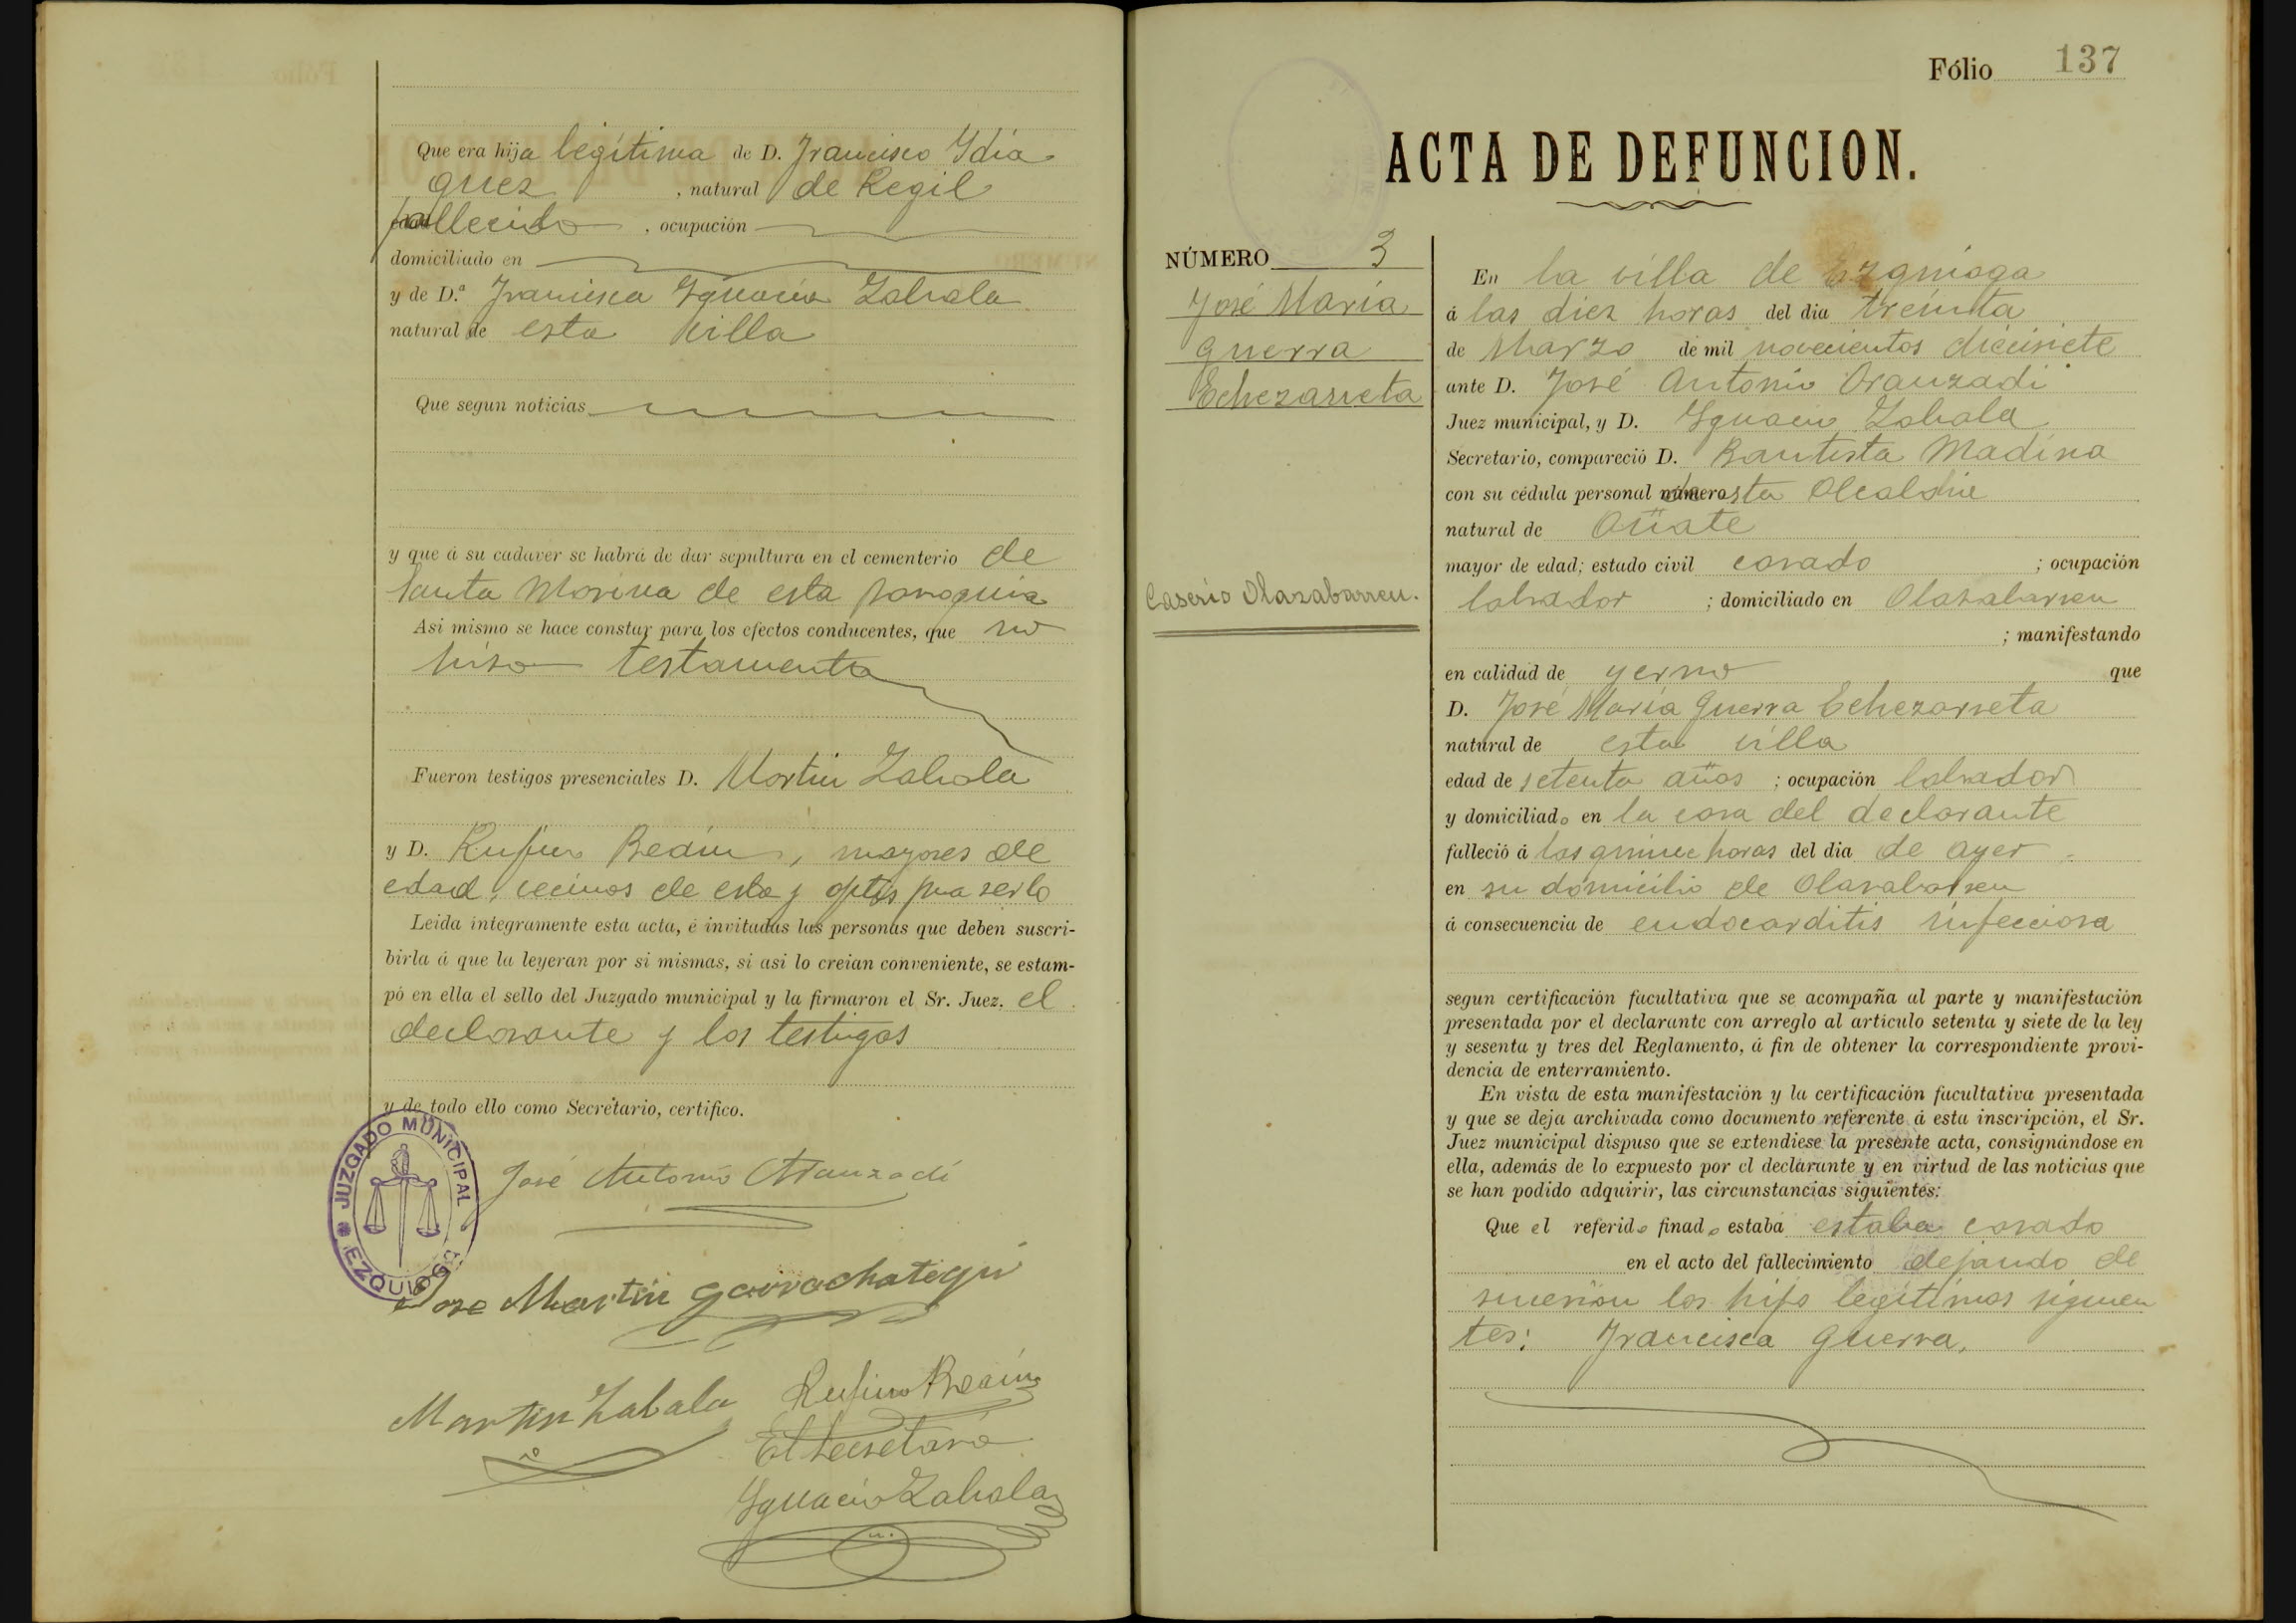 Que era hija legítima de D. Francisco Ydia
quez , natural de Regil
fallecido , ocupación
domiciliado en
y de D.ª Francisca Ygnacia Zabala
natural de esta villa
Que segun noticias
y que á su cadaver se habrá de dar sepultura en el cementerio de
Santa Marina de esta parroquia
Asi mismo se hace constar para los efectos conducentes, que no
hizo testamento
Fueron testigos presenciales D. Martin Zabala
y D. Rufino Beáin, mayores de
edad, vecinos de esta y aptos para serlo
Leida íntegramente esta acta, é invitadas las personas que deben suscri-
birla á que la leyeran por si mismas, si asi lo creian conveniente, se estam-
pó en ella el sello del Juzgado municipal y la firmaron el Sr. Juez, el
declarante y los testigos
y de todo ello como Secretario, certifico.
JUZGADO MUNICIPAL DE EZQUIOGA
José Antonio Aranzadi
Jose Martin Garrochategui
Martin Zabala Rufino Beáin
El Secretario
Ygnacio Zabala
Fólio 137
ACTA DE DEFUNCION.
NÚMERO 3
José María
Guerra
Echezarreta
Caserio Olazabarren.
En la villa de Ezquioga
á las diez horas del dia treinta
de Marzo de mil novecientos diecisiete
ante D. José Antonio Aranzadi
Juez municipal, y D. Ygnacio Zabala
Secretario, compareció D. Bautista Madina
con su cédula personal número de esta Alcaldia
natural de Oñate
mayor de edad; estado civil casado ; ocupación
labrador ; domiciliado en Olazabarren
; manifestando
en calidad de yerno que
D. José María Guerra Echezarreta
natural de esta villa
edad de setenta años ; ocupación labrador
y domiciliado en la casa del declarante
falleció á las quince horas del dia de ayer
en su domicilio de Olazabarren
á consecuencia de endocarditis infecciosa
segun certificación facultativa que se acompaña al parte y manifestación
presentada por el declarante con arreglo al artículo setenta y siete de la ley
y sesenta y tres del Reglamento, á fin de obtener la correspondiente provi-
dencia de enterramiento.
En vista de esta manifestación y la certificación facultativa presentada
y que se deja archivada como documento referente á esta inscripción, el Sr.
Juez municipal dispuso que se extendiese la presente acta, consignándose en
ella, además de lo expuesto por el declarante y en virtud de las noticias que
se han podido adquirir, las circunstancias siguientes:
Que el referido finado estaba estaba casado
en el acto del fallecimiento dejando de
su los hijos legítimos siguien
tes: Francisca Guerra,